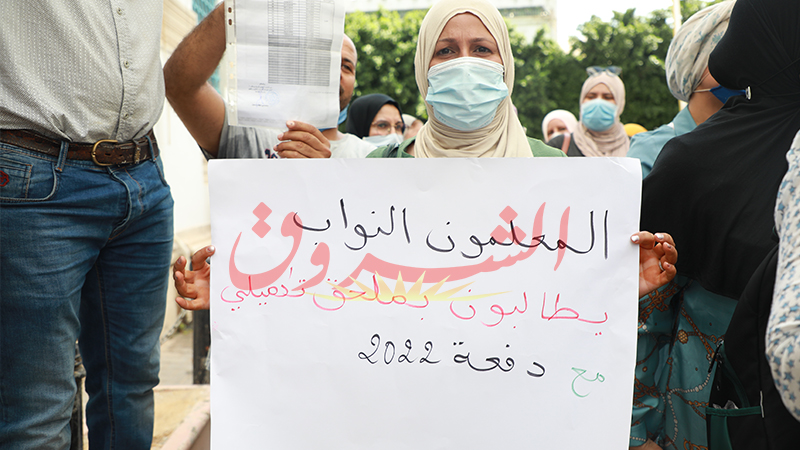 المعلمون النواب
الشروق
يطالبون بملحق تكميلي
مع دفعة 2022